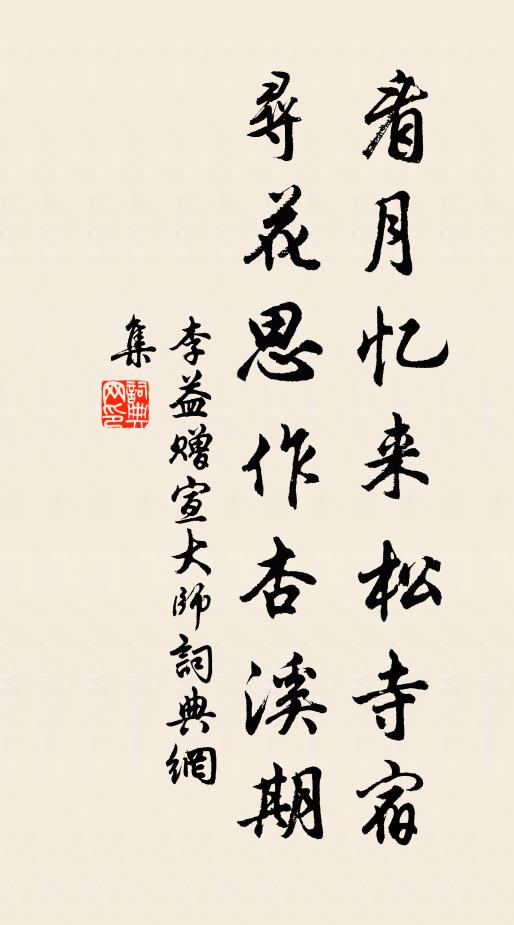 看月忆来松寺宿
尋花思作杏溪期
李益赠宣大師詞典網
集
詞典
网印